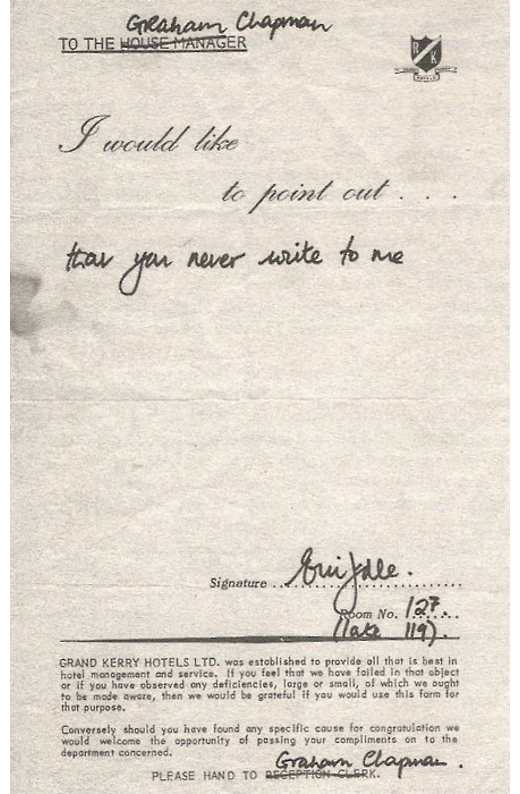 Graham Chapman
TO THE HOUSE MANAGER
I would like
to point out . . .
that you never write to me
Signature .. Eric Idle.
Room No. 127.
(late 119).
GRAND KERRY HOTELS LTD. was established to provide all that is best in
hotel management and service. If you feel that we have failed in that object
or if you have observed any deficiencies, large or small, of which we ought
to be made aware, then we would be grateful if you would use this form for
that purpose.
Conversely should you have found any specific cause for congratulation we
would welcome the opportunity of passing your compliments on to the
department concerned.
Graham Chapman.
PLEASE HAND TO RECEPTION CLERK.